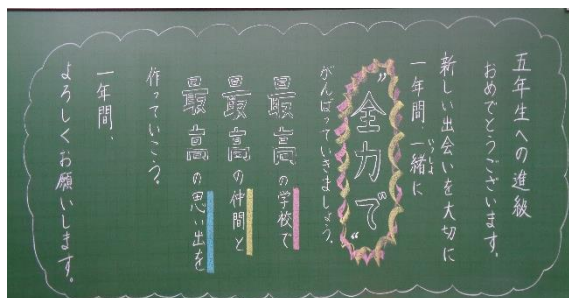 五年生への進級
おめでとうございます。
新しい出会いを大切に
一年間、一緒に
いっしょ
"全力で"
がんばっていきましょう。
最高の学校で
最高の仲間と
最高の思い出を
作っていこう。
一年間、
よろしくお願いします。